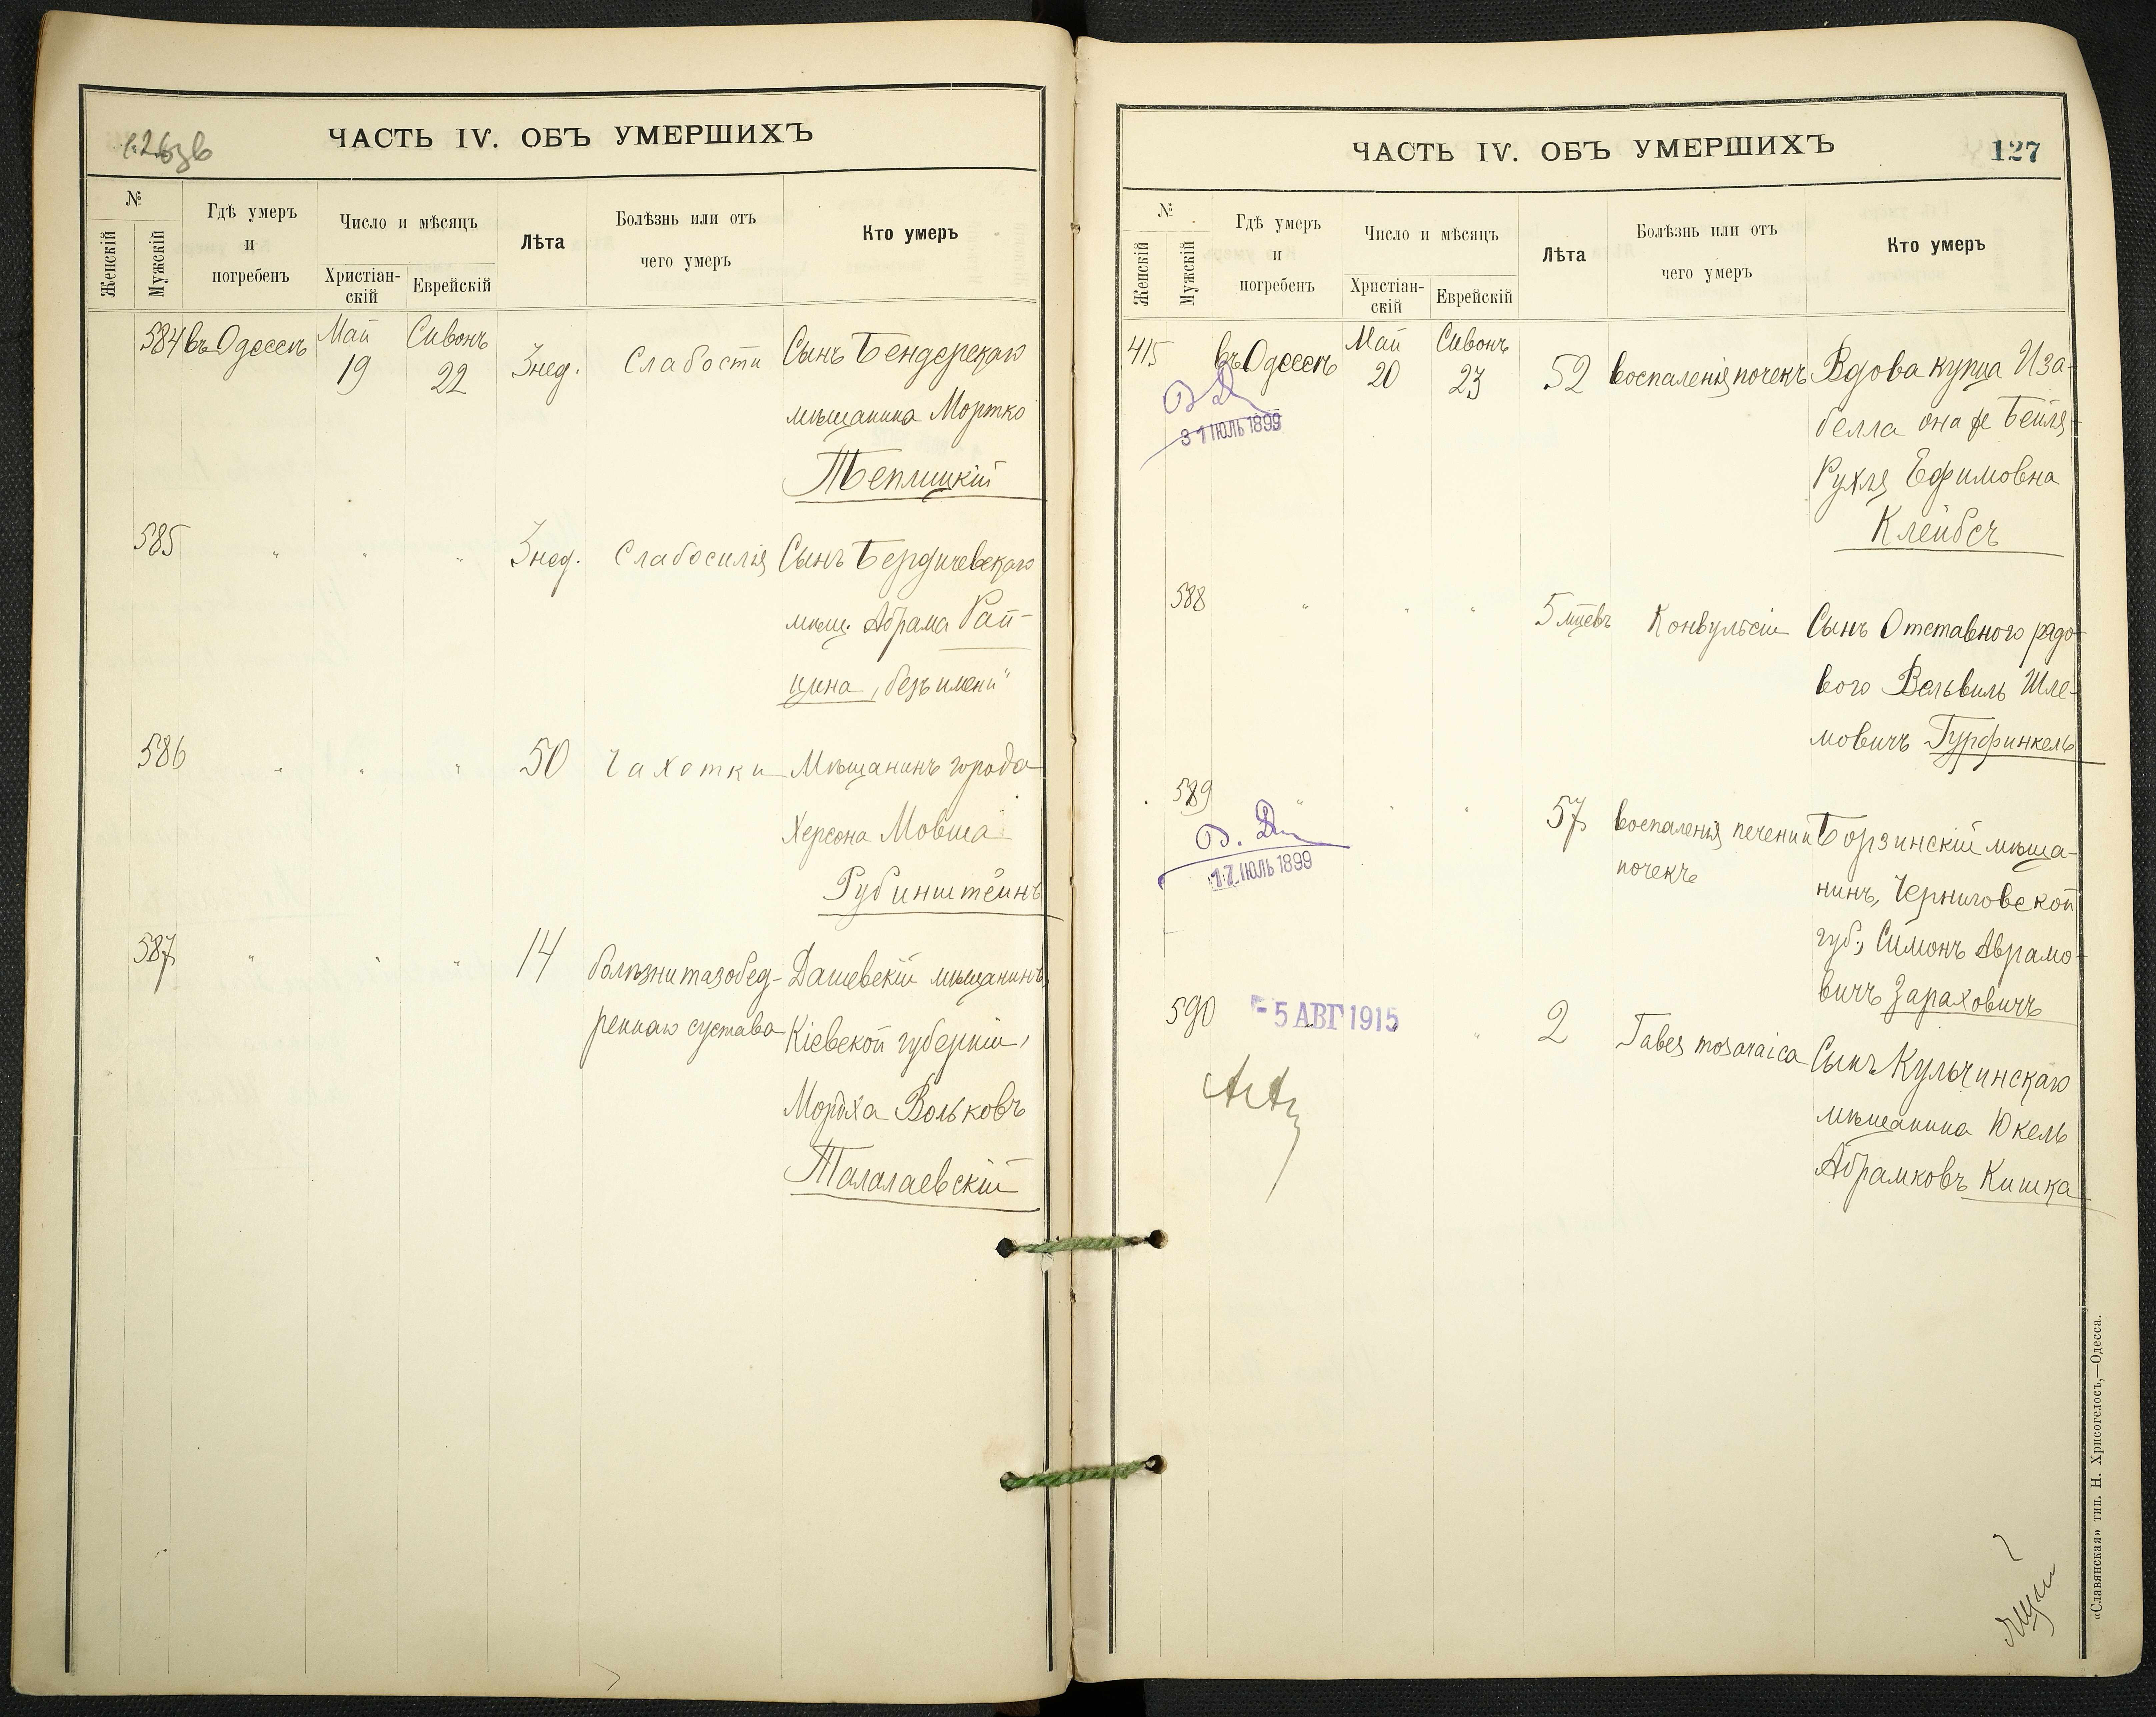 ЧАСТЬ IV. ОБЪ УМЕРШИХЪ
№
Женскій
Мужскій
Гдѣ умеръ
и
погребенъ
Число и мѣсяцъ
Христіан-
скій
Еврейскій
Лѣта
Болѣзнь или отъ
чего умеръ
Кто умеръ
584 въ Одессѣ Май 19 Сивонъ 22 3 нед. Слабости Сынъ Бендерскаго
мѣщанина Мортко
Теплицкій
585 " " " 3 нед. Слабосилія Сынъ Бердичевскаго
мѣщ. Абрама Рай-
цина „безъ имени"
586 " " " 50 Чахотки Мѣщанинъ города
Херсона Мовша
Рубинштейнъ
587 " " " 14 болѣзни тазобед- Дашевскій мѣщанинъ,
реннаго сустава Кіевской губерніи,
Мордха Вольковъ
Талалаевскій
ЧАСТЬ IV. ОБЪ УМЕРШИХЪ
127
№
Женскій
Мужскій
Гдѣ умеръ
и
погребенъ
Число и мѣсяцъ
Христіан-
скій
Еврейскій
Лѣта
Болѣзнь или отъ
чего умеръ
Кто умеръ
415 въ Одессѣ Май 20 Сивонъ 23 52 воспаленія почекъ Вдова купца Иза-
белла она же Бейля-
31 ІЮЛЬ 1899
Рухля Ефимовна
Клейбсъ
588 " " " 5 мцевъ Конвульсіи Сынъ Отставного рядо-
вого Вельвиль Шле-
мовичъ Гурфинкель
589 " " " 57 воспаленія печени и Борзинскій мѣща-
почекъ
17 ІЮЛЬ 1899
нинъ, Черниговской
губ., Симонъ Аврамо-
вичъ Зараховичъ
590 -5 АВГ 1915 " 2 Tabes mesaraica Сынъ Кульчинскаго
мѣщанина Юкель
Абрамковъ Кишка
«Славянская» тип. Н. Хрисогелосъ,—Одесса.